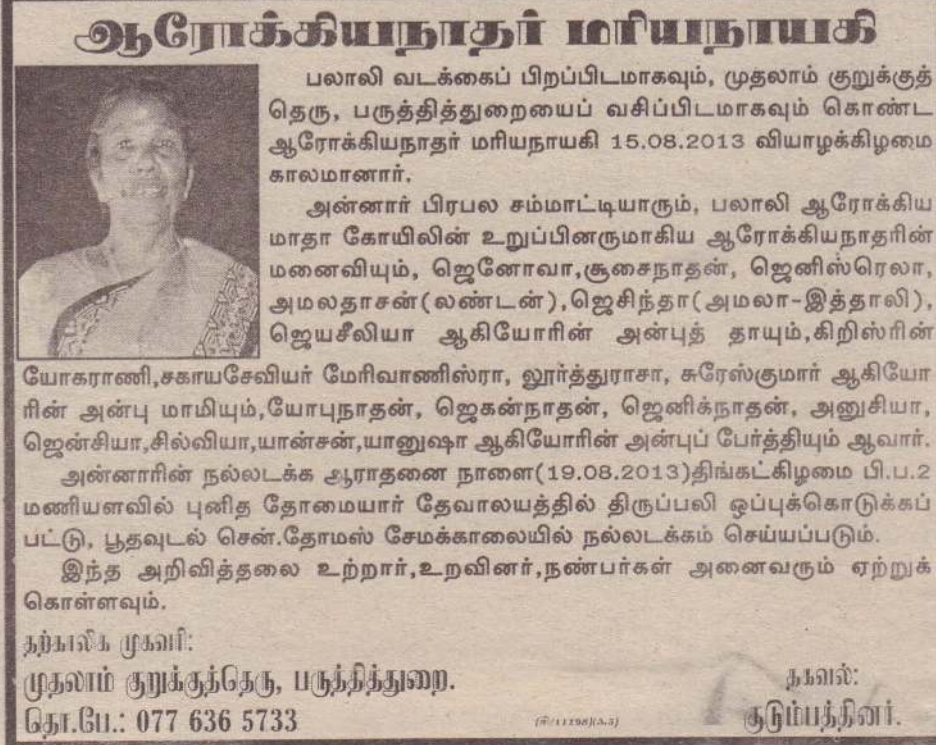 ஆரோக்கியநாதர் மரியநாயகி
பலாலி வடக்கைப் பிறப்பிடமாகவும், முதலாம் குறுக்குத்
தெரு, பருத்தித்துறையைப் வசிப்பிடமாகவும் கொண்ட
ஆரோக்கியநாதர் மரியநாயகி 15.08.2013 வியாழக்கிழமை
காலமானார்.
அன்னார் பிரபல சம்மாட்டியாரும், பலாலி ஆரோக்கிய
மாதா கோயிலின் உறுப்பினருமாகிய ஆரோக்கியநாதரின்
மனைவியும், ஜெனோவா,சூசைநாதன், ஜெனிஸ்ரெலா,
அமலதாசன்(லண்டன்),ஜெசிந்தா(அமலா-இத்தாலி),
ஜெயசீலியா ஆகியோரின் அன்புத் தாயும்,கிறிஸ்ரின்
யோகராணி,சகாயசேவியர் மேரிவாணிஸ்ரா, லூர்த்துராசா, சுரேஸ்குமார் ஆகியோ
ரின் அன்பு மாமியும்,யோபுநாதன், ஜெகன்நாதன், ஜெனிக்நாதன், அனுசியா,
ஜென்சியா,சில்வியா,யான்சன்,யானுஷா ஆகியோரின் அன்புப் பேர்த்தியும் ஆவார்.
அன்னாரின் நல்லடக்க ஆராதனை நாளை(19.08.2013)திங்கட்கிழமை பி.ப.2
மணியளவில் புனித தோமையார் தேவாலயத்தில் திருப்பலி ஒப்புக்கொடுக்கப்
பட்டு, பூதவுடல் சென்.தோமஸ் சேமக்காலையில் நல்லடக்கம் செய்யப்படும்.
இந்த அறிவித்தலை உற்றார்,உறவினர்,நண்பர்கள் அனைவரும் ஏற்றுக்
கொள்ளவும்.
தற்காலிக முகவரி:
முதலாம் குறுக்குத்தெரு, பருத்தித்துறை.
தொ.பே.: 077 636 5733
தகவல்:
குடும்பத்தினர்.